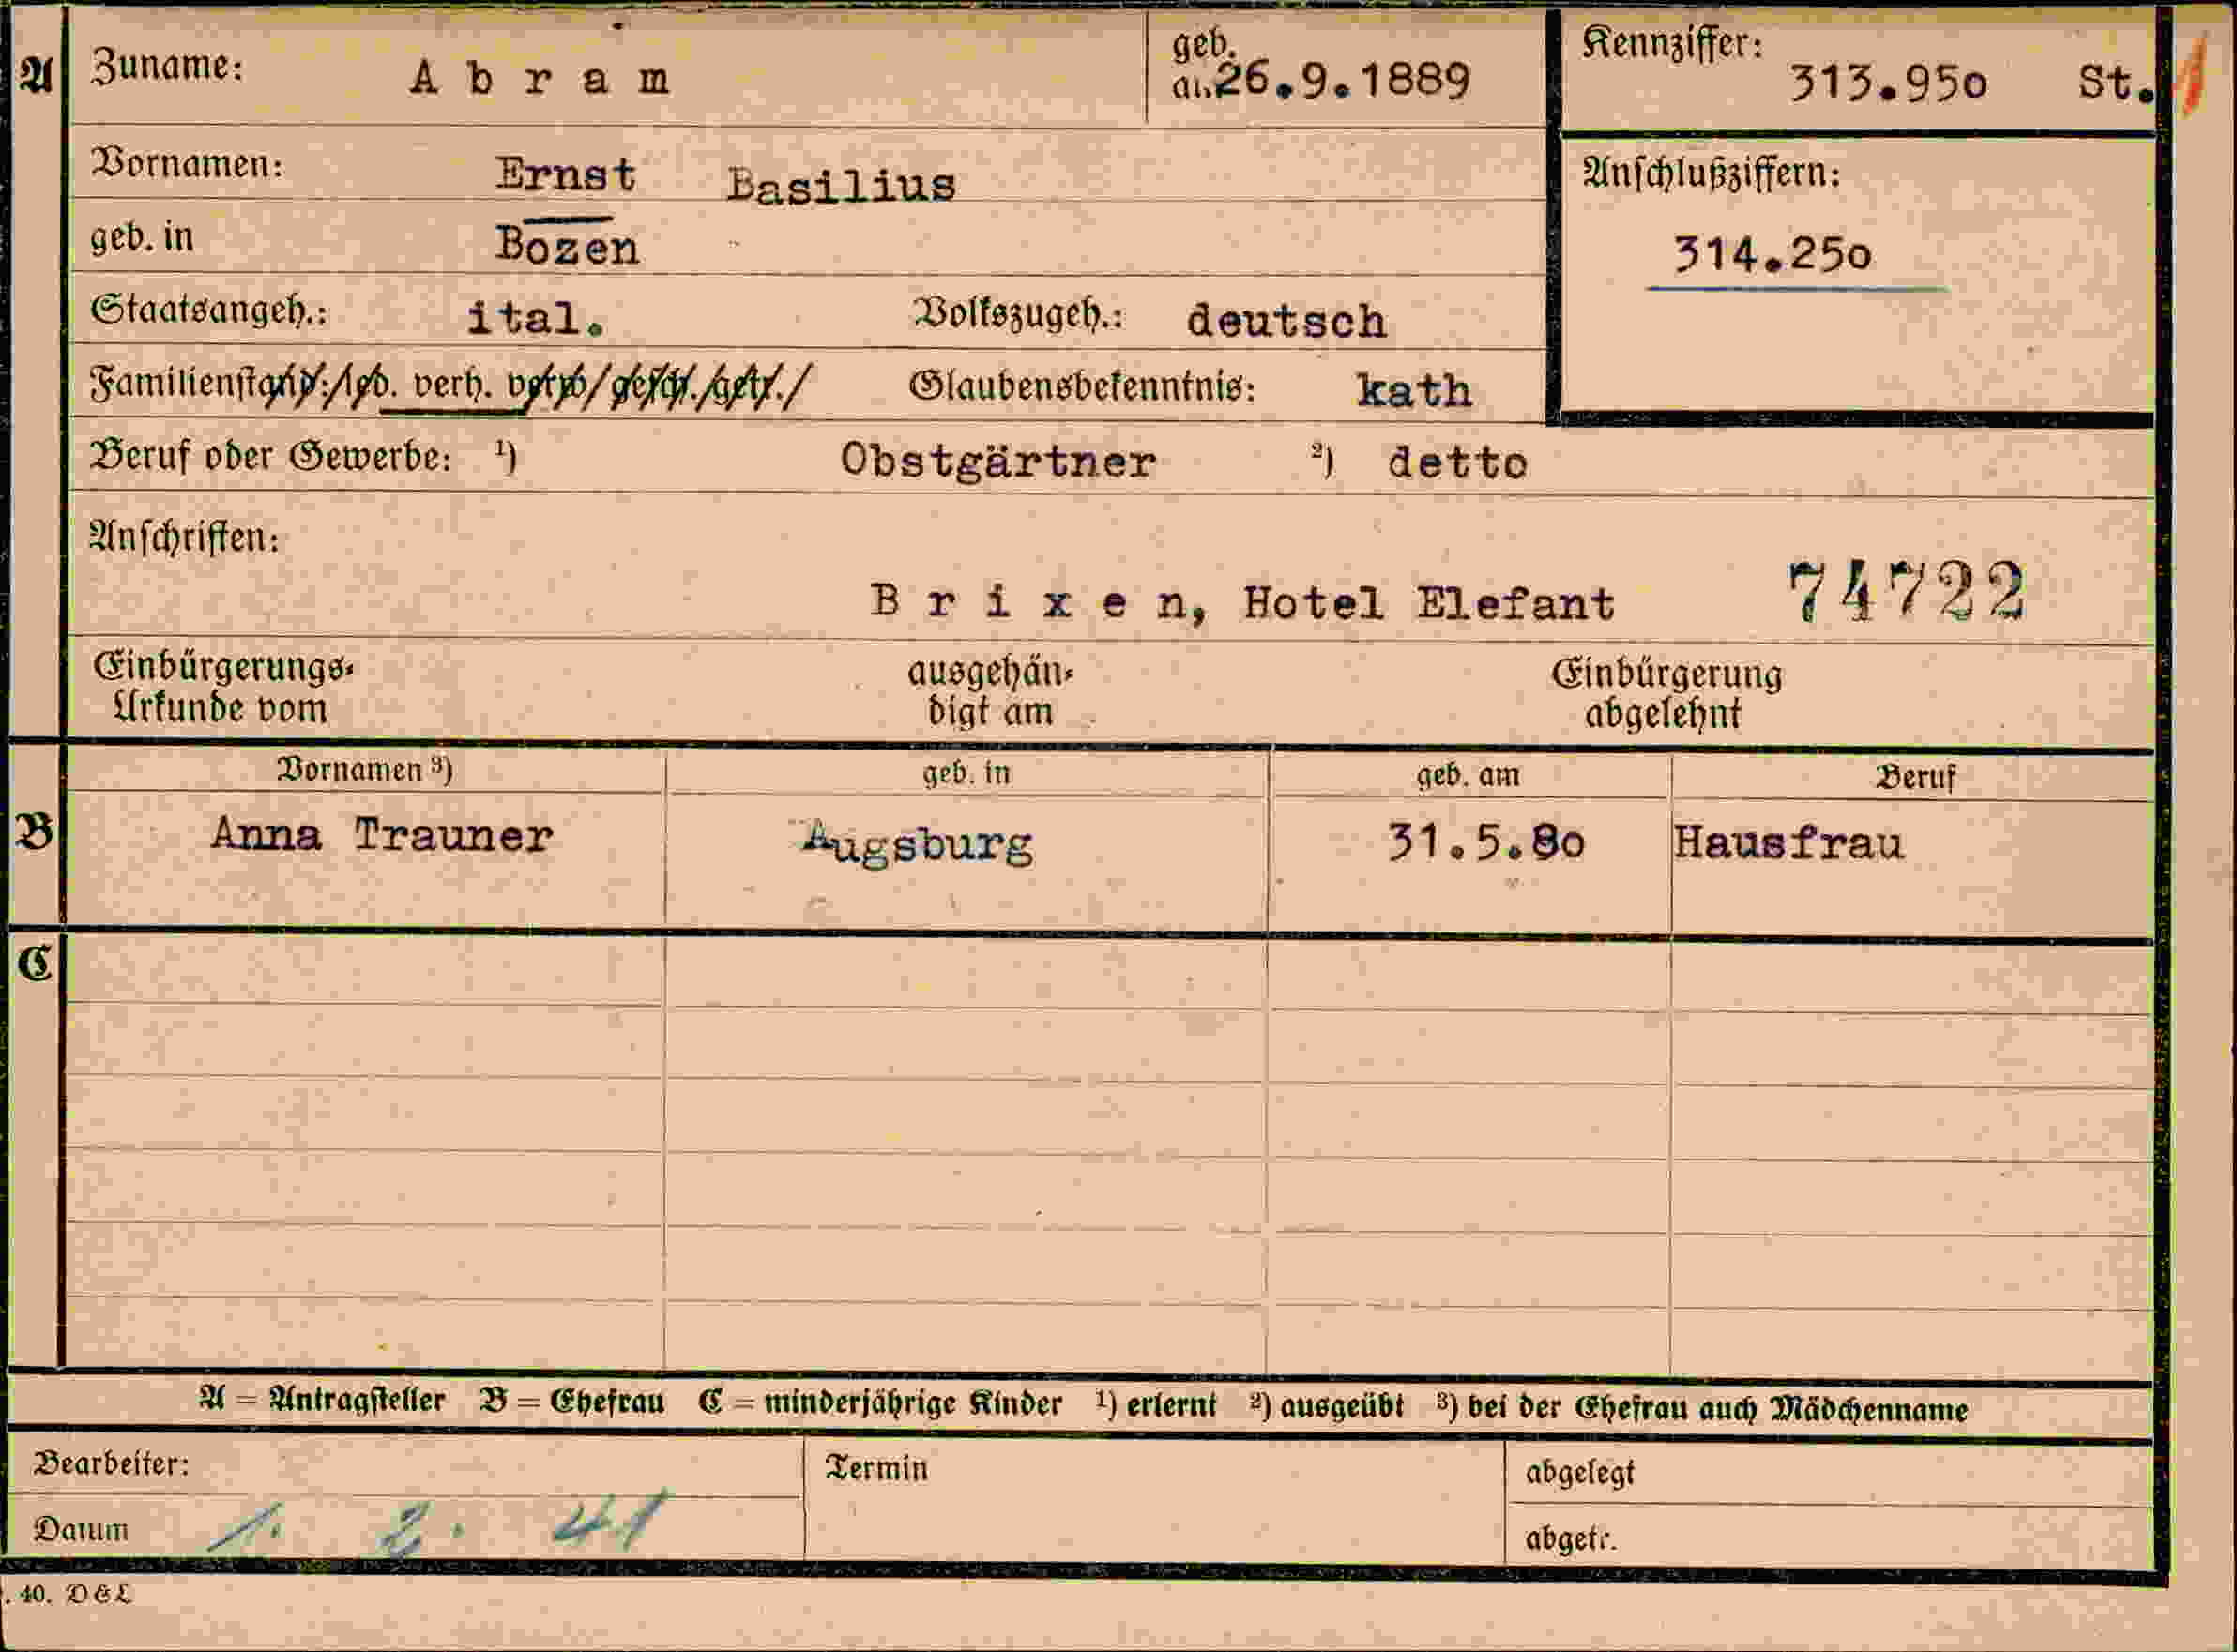 A Zuname: Abram geb. am 26.9.1889 Kennziffer: 313.950 St.
Vornamen: Ernst Basilius Anschlußziffern:
geb. in Bozen 314.250
Staatsangeh.: ital. Volkszugeh.: deutsch
Familienstand: led. verh. verw. gesch. getr. Glaubensbekenntnis: kath
Beruf oder Gewerbe: ¹) Obstgärtner ²) detto
Anschriften:
Brixen, Hotel Elefant 74722
Einbürgerungs- ausgehän- Einbürgerung
Urkunde vom digt am abgelehnt
Vornamen ³) geb. in geb. am Beruf
B Anna Trauner Augsburg 31.5.80 Hausfrau
C
A = Antragsteller B = Ehefrau C = minderjährige Kinder ¹) erlernt ²) ausgeübt ³) bei der Ehefrau auch Mädchenname
Bearbeiter: Termin abgelegt
Datum 1. 2. 41 abgetr.
. 40. D&L